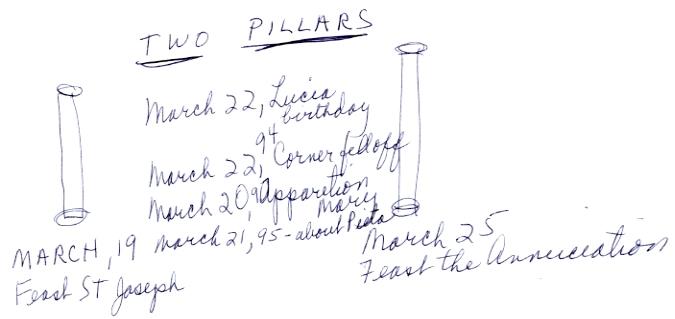 TWO PILLARS
March 22, Lucia
birthday
94
March 22, Corner fell off
March 20, 9 Apparetion
Mary
MARCH, 19 March 21, 95 - about Pieta
Feast ST Joseph
March 25
Feast the Annuciation